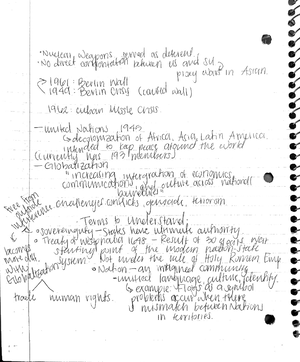 • Nuclear weapons served as deterrent
• No direct confrontation between US and SU
proxy wars in Asia
> 1961: Berlin Wall
> 1949: Berlin Crisis (caused wall)
1962: Cuban Missile Crisis
- United Nations 1945
↳ decolonization of Africa, Asia, Latin America
intended to keep peace around the world
(currently has 193 members)
- Globalization
" increasing integration of economics,
communications, and culture across national
boundaries
challenges: conflicts, genocide, terrorism
free from outside interference
Terms to Understand:
o sovereignty - States have ultimate authority
o Treaty of Westphalia 1648 - Result of 30 years war
starting point of the modern nation state
system. Not under the rule of Holy Roman Emp.
becomes
more diff.
w/
Globalization
trade human rights.
o Nation - an imagined community
- unified language, culture, identity
↳ example: Flags as a symbol
problems occur when there
mismatch between Nations
in territories.